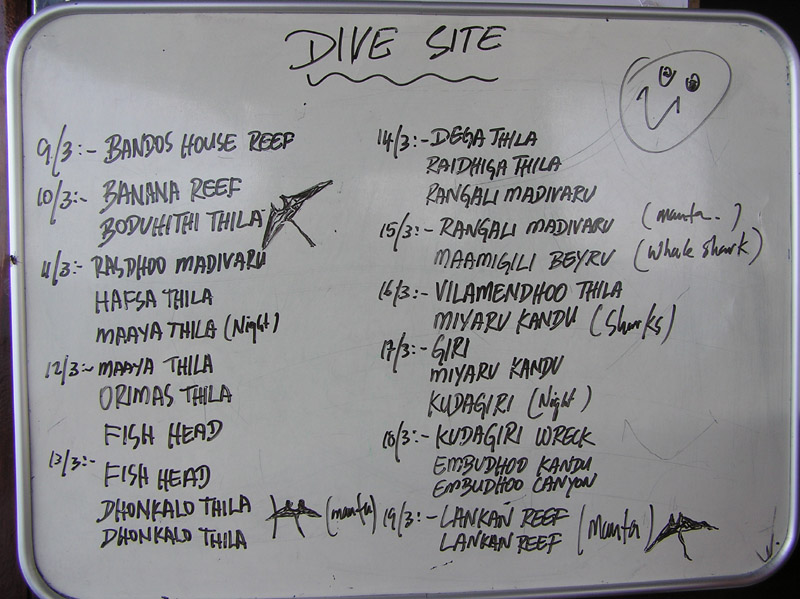 DIVE SITE
9/3:- BANDOS HOUSE REEF
10/3:- BANANA REEF
BODUHITHI THILA
11/3:- RASDHOO MADIVARU
HAFSA THILA
MAAYA THILA (Night)
12/3:- MAAYA THILA
ORIMAS THILA
FISH HEAD
13/3:- FISH HEAD
DHONKALO THILA (manta)
DHONKALO THILA
14/3:- DEGA THILA
RAIDHIGA THILA
RANGALI MADIVARU
15/3:- RANGALI MADIVARU (manta.)
MAAMIGILI BEYRU (Whale Shark)
16/3:- VILAMENDHOO THILA
MIYARU KANDU (Sharks)
17/3:- GIRI
MIYARU KANDU
KUDAGIRI (Night)
18/3:- KUDAGIRI WRECK
EMBUDHOO KANDU
EMBUDHOO CANYON
19/3:- LANKAN REEF
LANKAN REEF (Manta)